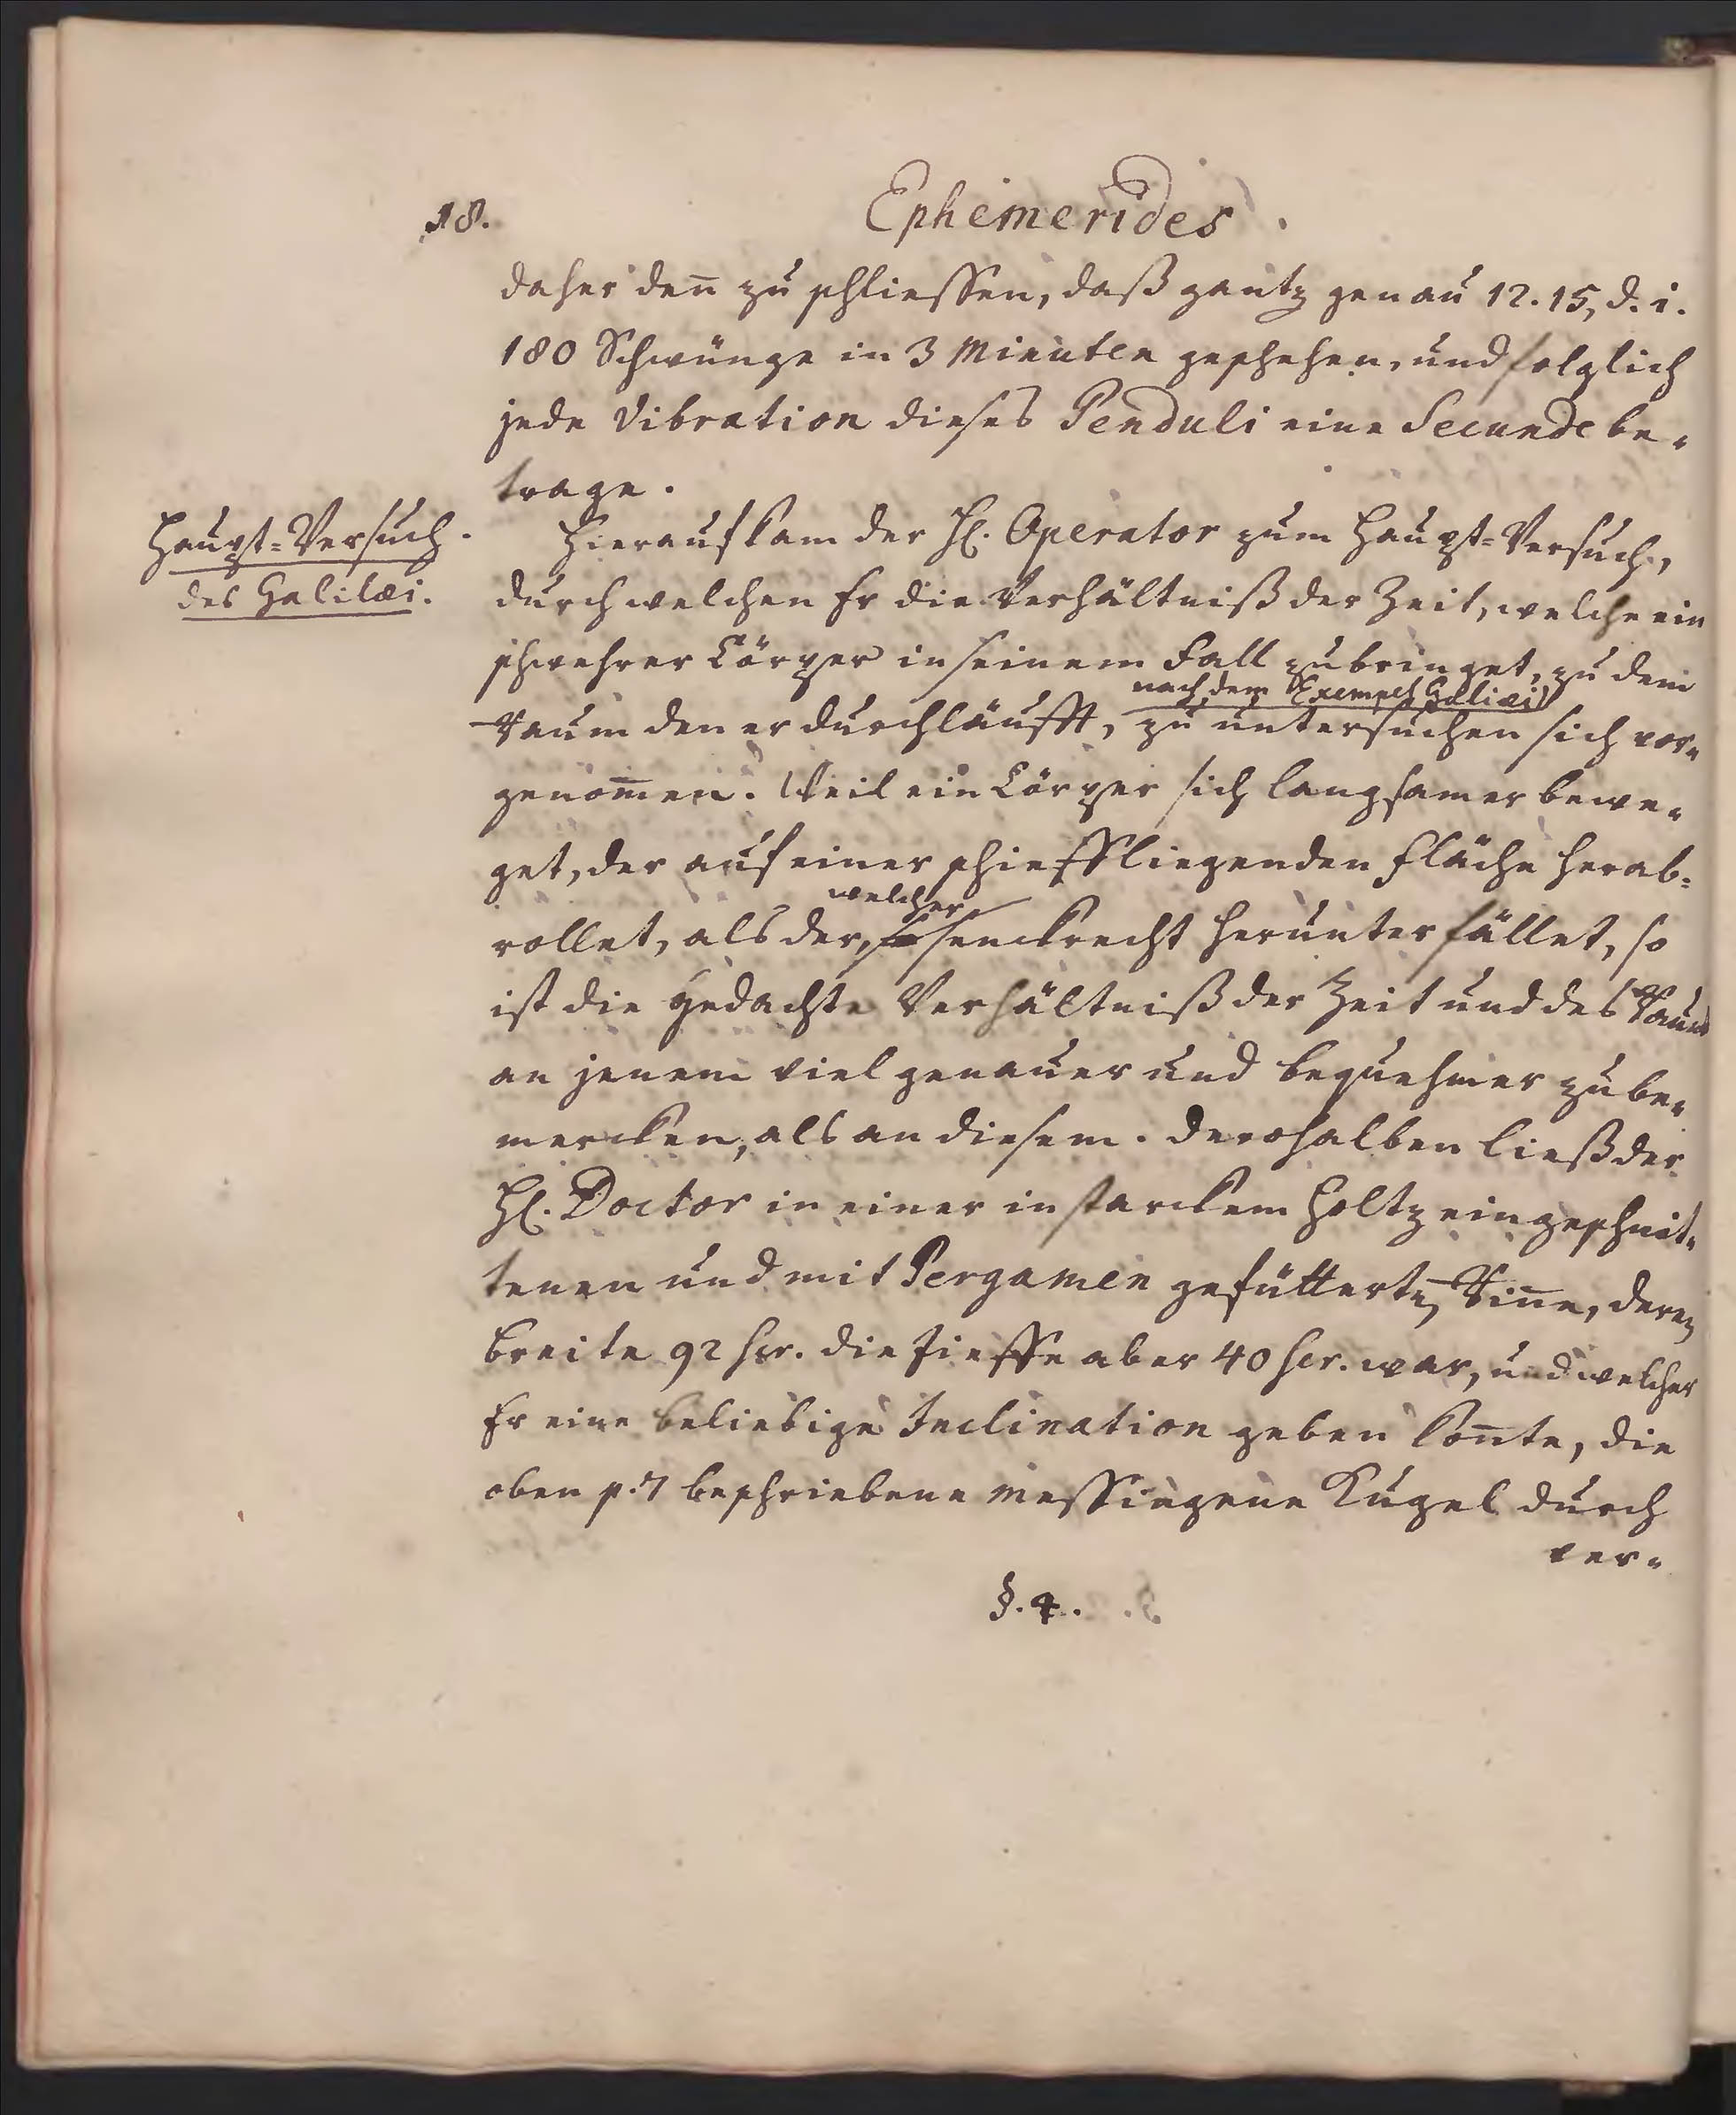 18.
Ephemerides
daher den̄ zu schliessen, daß gantz genau 12. 15, d. i.
180 Schwünge in 3 Minuten geschehen, und folglich
jede Vibration dieses Penduli eine Secunde be-
trage.
Haupt-Versuch.
des Galilæi.
Hierauf kam der H. Operator zum Haupt-Versuch,
durch welchen Er die Verhältniß der Zeit, welche ein
schwehrer Cörper in seinem Fall zubringet, zu dem
nach dem Exempel Galilæi
Raum den er durchläufft, zu untersuchen sich vor-
genom̄en. Weil ein Cörper sich langsamer bewe-
get, der auf einer schieffliegenden Fläche herab-
welcher
rollet, als der, so senckrecht herunter fället, so
ist die gedachte Verhältniß der Zeit und des Raums
an jenem viel genauer und bequehmer zu be-
mercken, als an diesem. Derohalben ließ der
H. Doctor in einer in starckem Holtz eingeschnit-
tenen und mit Pergamen gefütterten Rin̄e, deren
Breite 92 scr. die Tieffe aber 40 scr. war, und welcher
Er eine beliebige Inclination geben kon̄te, die
oben p. 7 beschriebene messingene Kugel durch
ver-
§. 4.